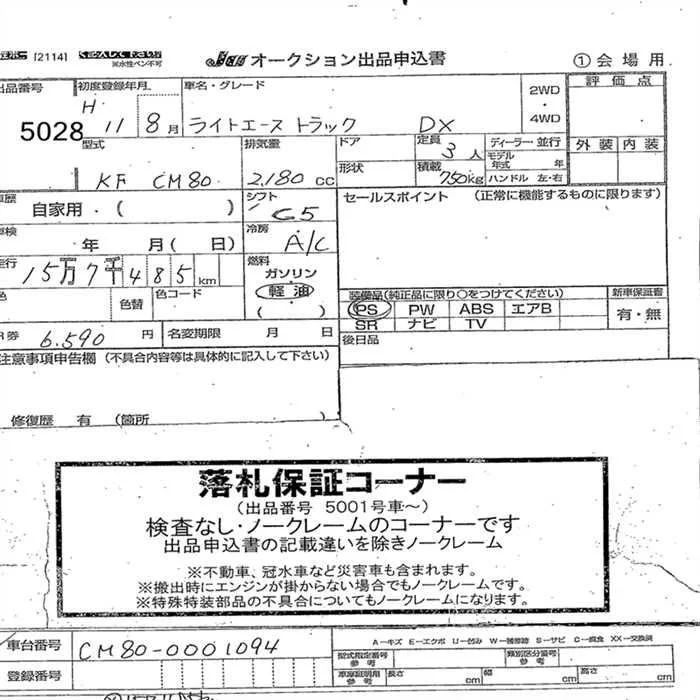 [2114] 記入して下さい
※水性ペン不可
Jaa オークション出品申込書 ①会場用
出品番号 初度登録年月 車名・グレード 2WD・4WD 評価点
5028 H 11 8月 ライトエーストラック DX
型式 排気量 ドア 定員 3人 ディーラー・並行 外装 内装
KF CM80 2,180cc 形状 積載 750kg モデル年式 年
ハンドル 左・右
車歴 自家用・( ) シフト C5 セールスポイント (正常に機能するものに限ります)
車検 年 月( 日) 冷房 A/C
走行 15万7千485km 燃料 ガソリン
軽油
( )
色 色替 色コード
装備品(純正品に限り○をつけてください) 新車保証書
PS PW ABS エアB 有・無
SR ナビ TV
R券 6.590 円 名変期限 月 日 後日品
注意事項申告欄 (不具合内容等は具体的に記入して下さい)
修復歴 有 (箇所 )
落札保証コーナー
(出品番号 5001号車~)
検査なし・ノークレームのコーナーです
出品申込書の記載違いを除きノークレーム
※不動車、冠水車など災害車も含まれます。
※搬出時にエンジンが掛からない場合でもノークレームです。
※特殊特装部品の不具合についてもノークレームになります。
車台番号 CM80-0001094
A−キズ E−エクボ U−凹み W−補修跡 S−サビ C−腐食 XX−交換済
型式指定番号 参考 類別区分番号 参考
登録番号 車庫証明用 参考 長さ cm 幅 cm 高さ cm